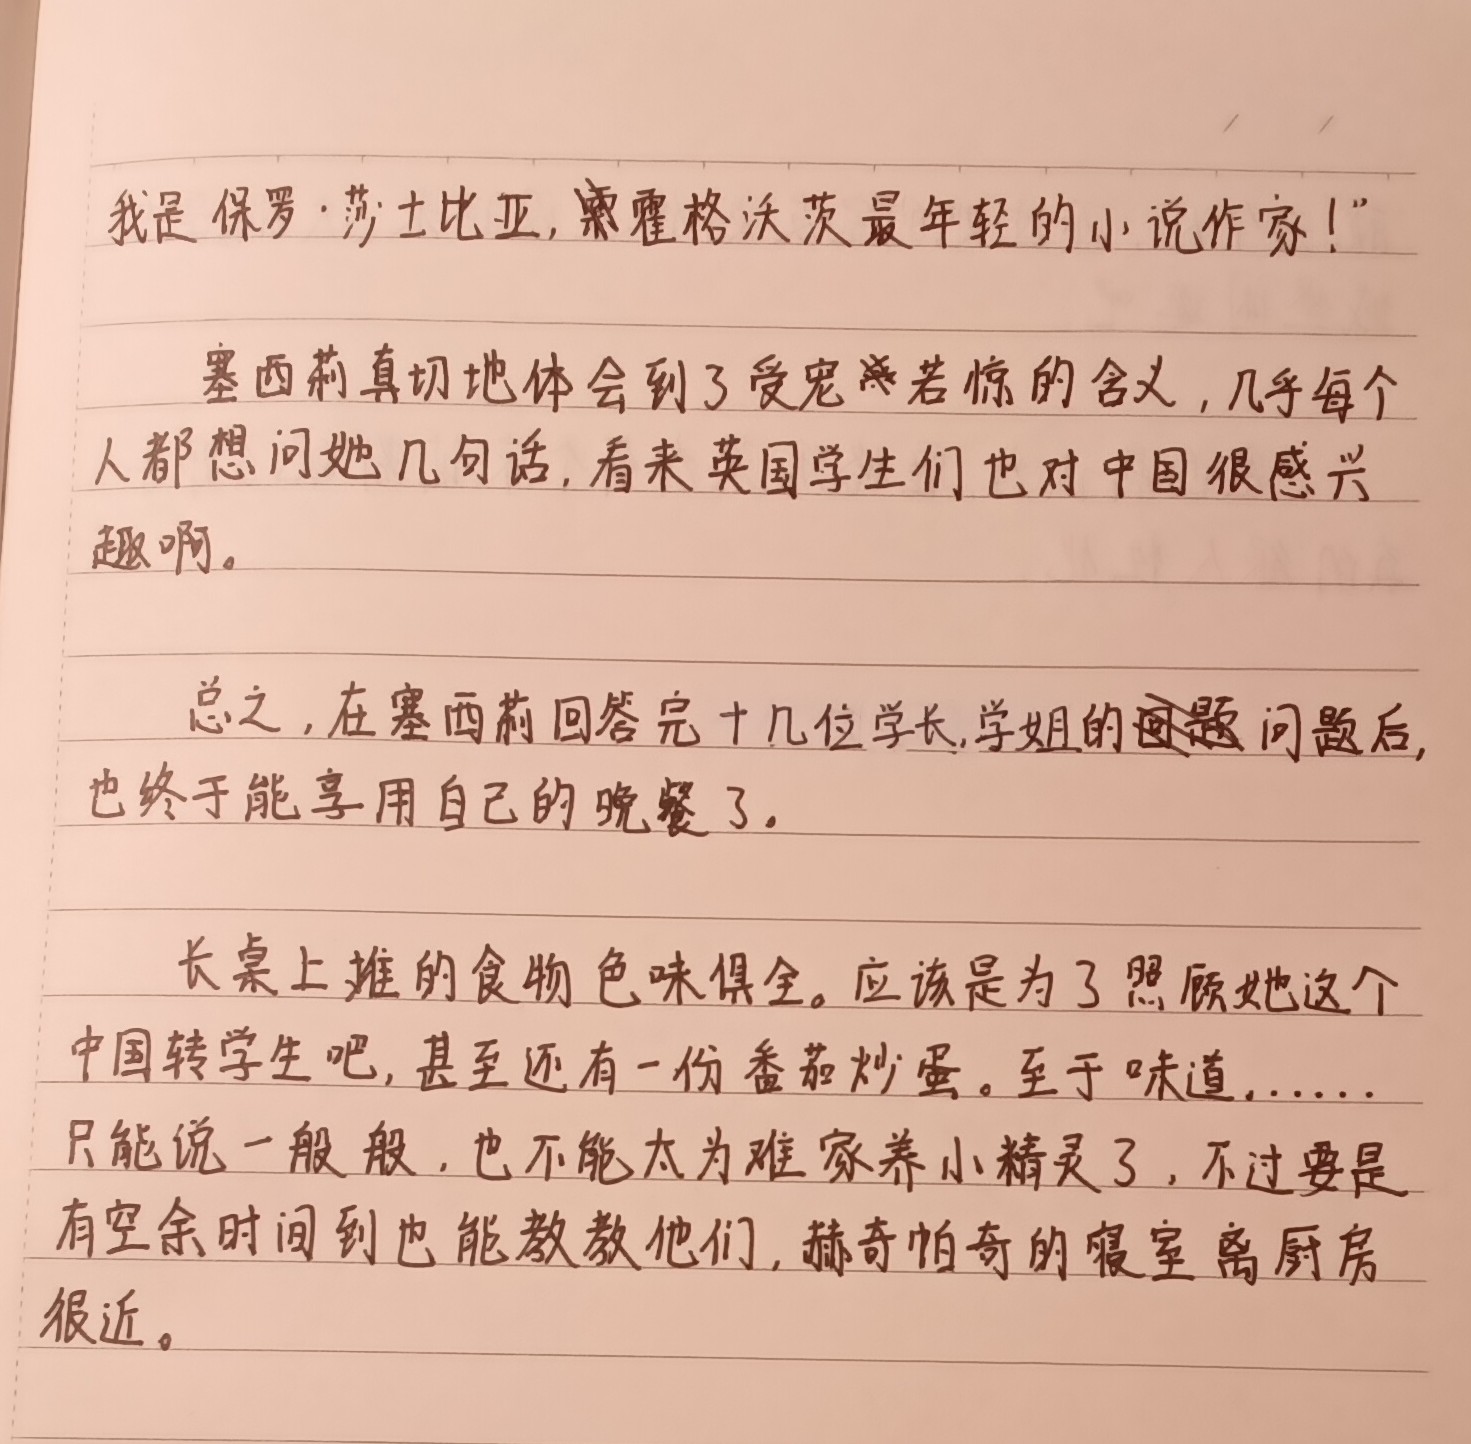 我是保罗·莎士比亚,霍格沃茨最年轻的小说作家!”
塞西莉真切地体会到了受宠若惊的含义,几乎每个
人都想问她几句话,看来英国学生们也对中国很感兴
趣啊。
总之,在塞西莉回答完十几位学长,学姐的问题后,
也终于能享用自己的晚餐了。
长桌上堆的食物色味俱全。应该是为了照顾她这个
中国转学生吧,甚至还有一份番茄炒蛋。至于味道......
只能说一般般,也不能太为难家养小精灵了,不过要是
有空余时间到也能教教他们,赫奇帕奇的寝室离厨房
很近。